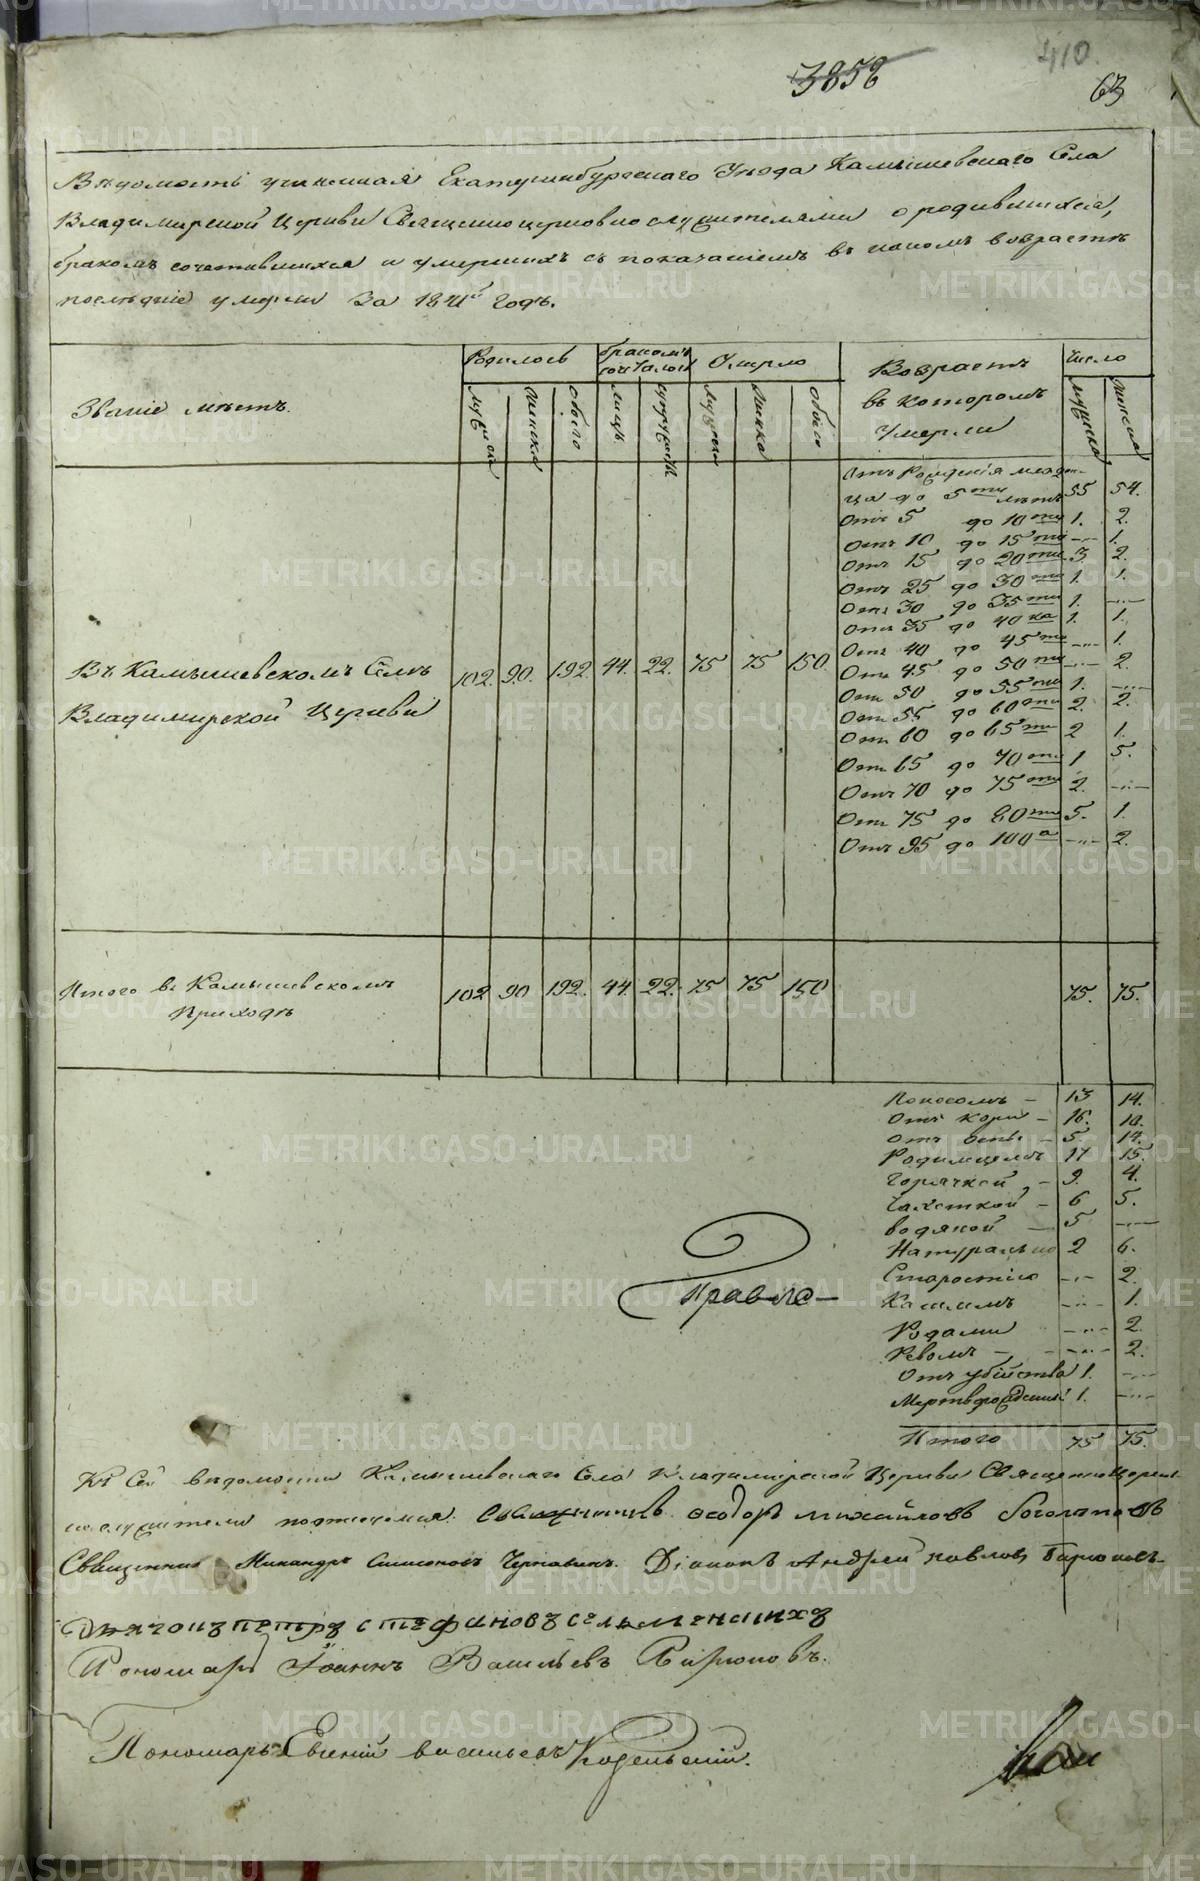 410.
3858
63
Вѣдомость учиненная Екатеринбургскаго Уѣзда Камышевскаго Села
Владимирской Церкви Священноцерковнослужителями о родившихся,
бракомъ сочетавшихся и умершихъ съ показаніемъ въ какомъ возрастѣ
послѣдніе умерли За 1841й годъ.
Званіе мѣстъ.
Родилось
мужска
женска
обоего
бракомъ сочеталось
лицъ
супружествъ
Умерло
мужска
женска
обоего
Возрастъ
въ которомъ
умерли
Число
мужска
женска
Отъ Рожденія младен-
ца до 5ти лѣтъ 55 54.
Отъ 5 до 10ти 1. 2.
Отъ 10 до 15ти -- 1.
Отъ 15 до 20ти 3 2.
Отъ 25 до 30ти 1. 1.
Отъ 30 до 35ти 1. --
Отъ 35 до 40ка 1. 1.
Отъ 40 до 45ти -- 1.
Отъ 45 до 50ти -- 2.
Отъ 50 до 55ти 1. --
Отъ 55 до 60ти 2. 2.
Отъ 60 до 65ти 2 1.
Отъ 65 до 70ти 1 5.
Отъ 70 до 75ти 2. --
Отъ 75 до 80ти 5. 1.
Отъ 95 до 100а -- 2.
Въ Камышевскомъ Селѣ
Владимирской Церкви
102. 90. 192. 44. 22. 75 75 150.
Итого въ Камышевскомъ
Приходѣ
102 90 192. 44. 22. 75 75 150 75. 75.
Поносомъ - 13 14.
Отъ кори - 16. 10.
Отъ оспы - 5. 14.
Родимцемъ 17 15.
Горячкой - 9. 4.
Чахоткой - 6 5.
водяной - 5 --
Натурально 2 6.
Старостію -- 2.
Кашлемъ -- 1.
Родами -- 2.
Ревомъ - -- 2.
Отъ убійства 1. --
Мертворожденный 1. --
Итого 75 75.
Къ Сей вѣдомости Камышевскаго Села Владимирской Церкви Священноцерков-
нослужители подписуемся. Священникъ Феодоръ Михайловъ Боголѣповъ
Священникъ Никандръ Симеоновъ Чернавинъ. Діаконъ Андрей Павловъ Бирюковъ
Дьячокъ Петръ Стефановъ Сельменскихъ
Пономарь Іоаннъ Васильевъ Бирюковъ.
Пономарь Евгеній Васильевъ Кодельскій.
METRIKI.GASO-URAL.RU